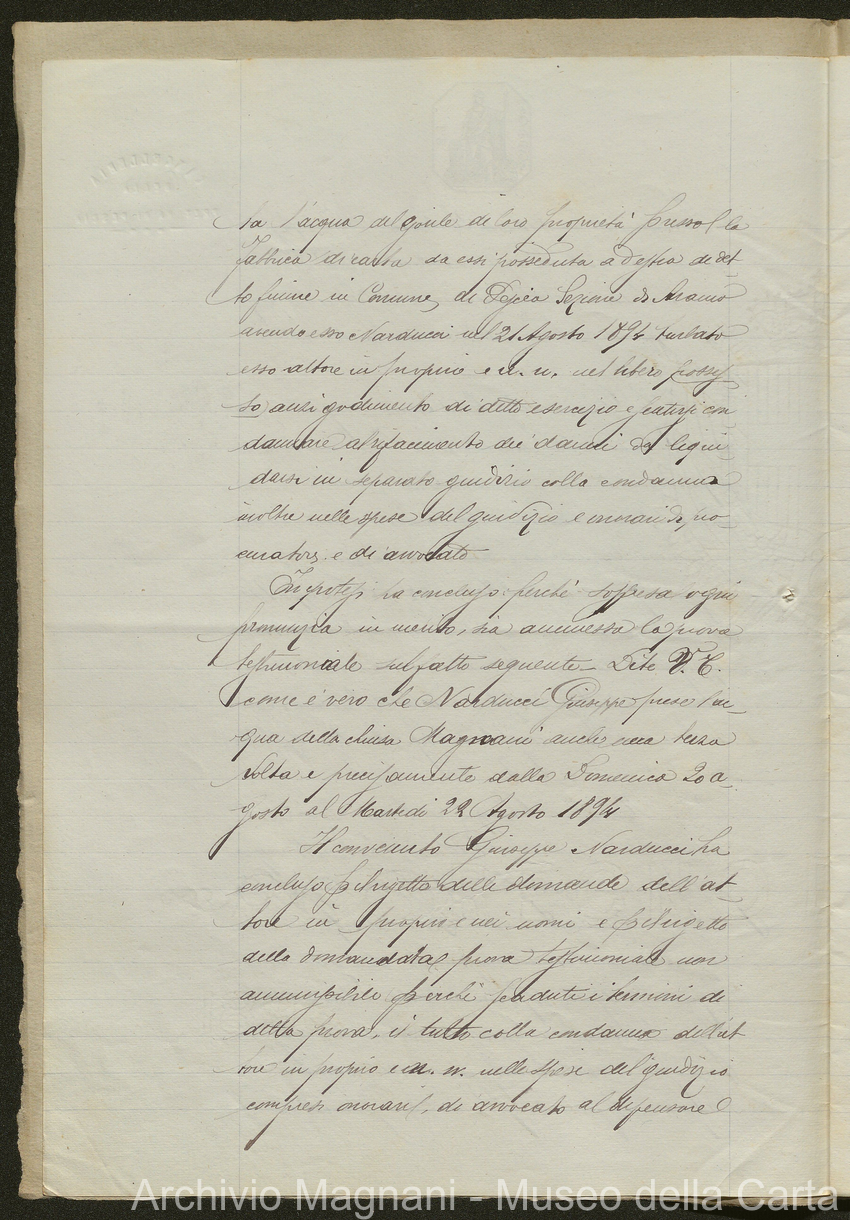 ta l'acqua del gorile di loro proprietà presso la
fabbrica di carta da essi posseduta a destra di det-
to fiume in Comune di Pescia Sezione di Aramo
avendo esso Narducci nel 21 Agosto 1894 turbato
esso attore in proprio e n. n. nel libero posses-
so, anzi godimento di detto esercizio e sentirsi con
dannare al rifacimento dei danni da liqui
darsi in separato giudizio colla condanna
inoltre nelle spese del giudizio e onorari di pro-
curatore e di avvocato
In ipotesi ha concluso: perché sospesa ogni
pronunzia in merito, sia ammessa la prova
testimoniale sul fatto seguente - Dite V. C.
come è vero che Narducci Giuseppe prese l'ac-
qua della chiusa Magnani anche una terza
volta e precisamente dalla Domenica 20 a-
gosto al Martedì 22 Agosto 1894
Il convenuto Giuseppe Narducci ha
concluso pel rigetto delle domande dell'at-
tore in proprio e nei nomi e pel rigetto
della domandata prova testimoniale non
ammissibile perché scaduti i termini di
detta prova, il tutto colla condanna dell'at
tore in proprio e n. n. nelle spese del giudizio
compresi onorari, di avvocato al difensore
Archivio Magnani - Museo della Carta